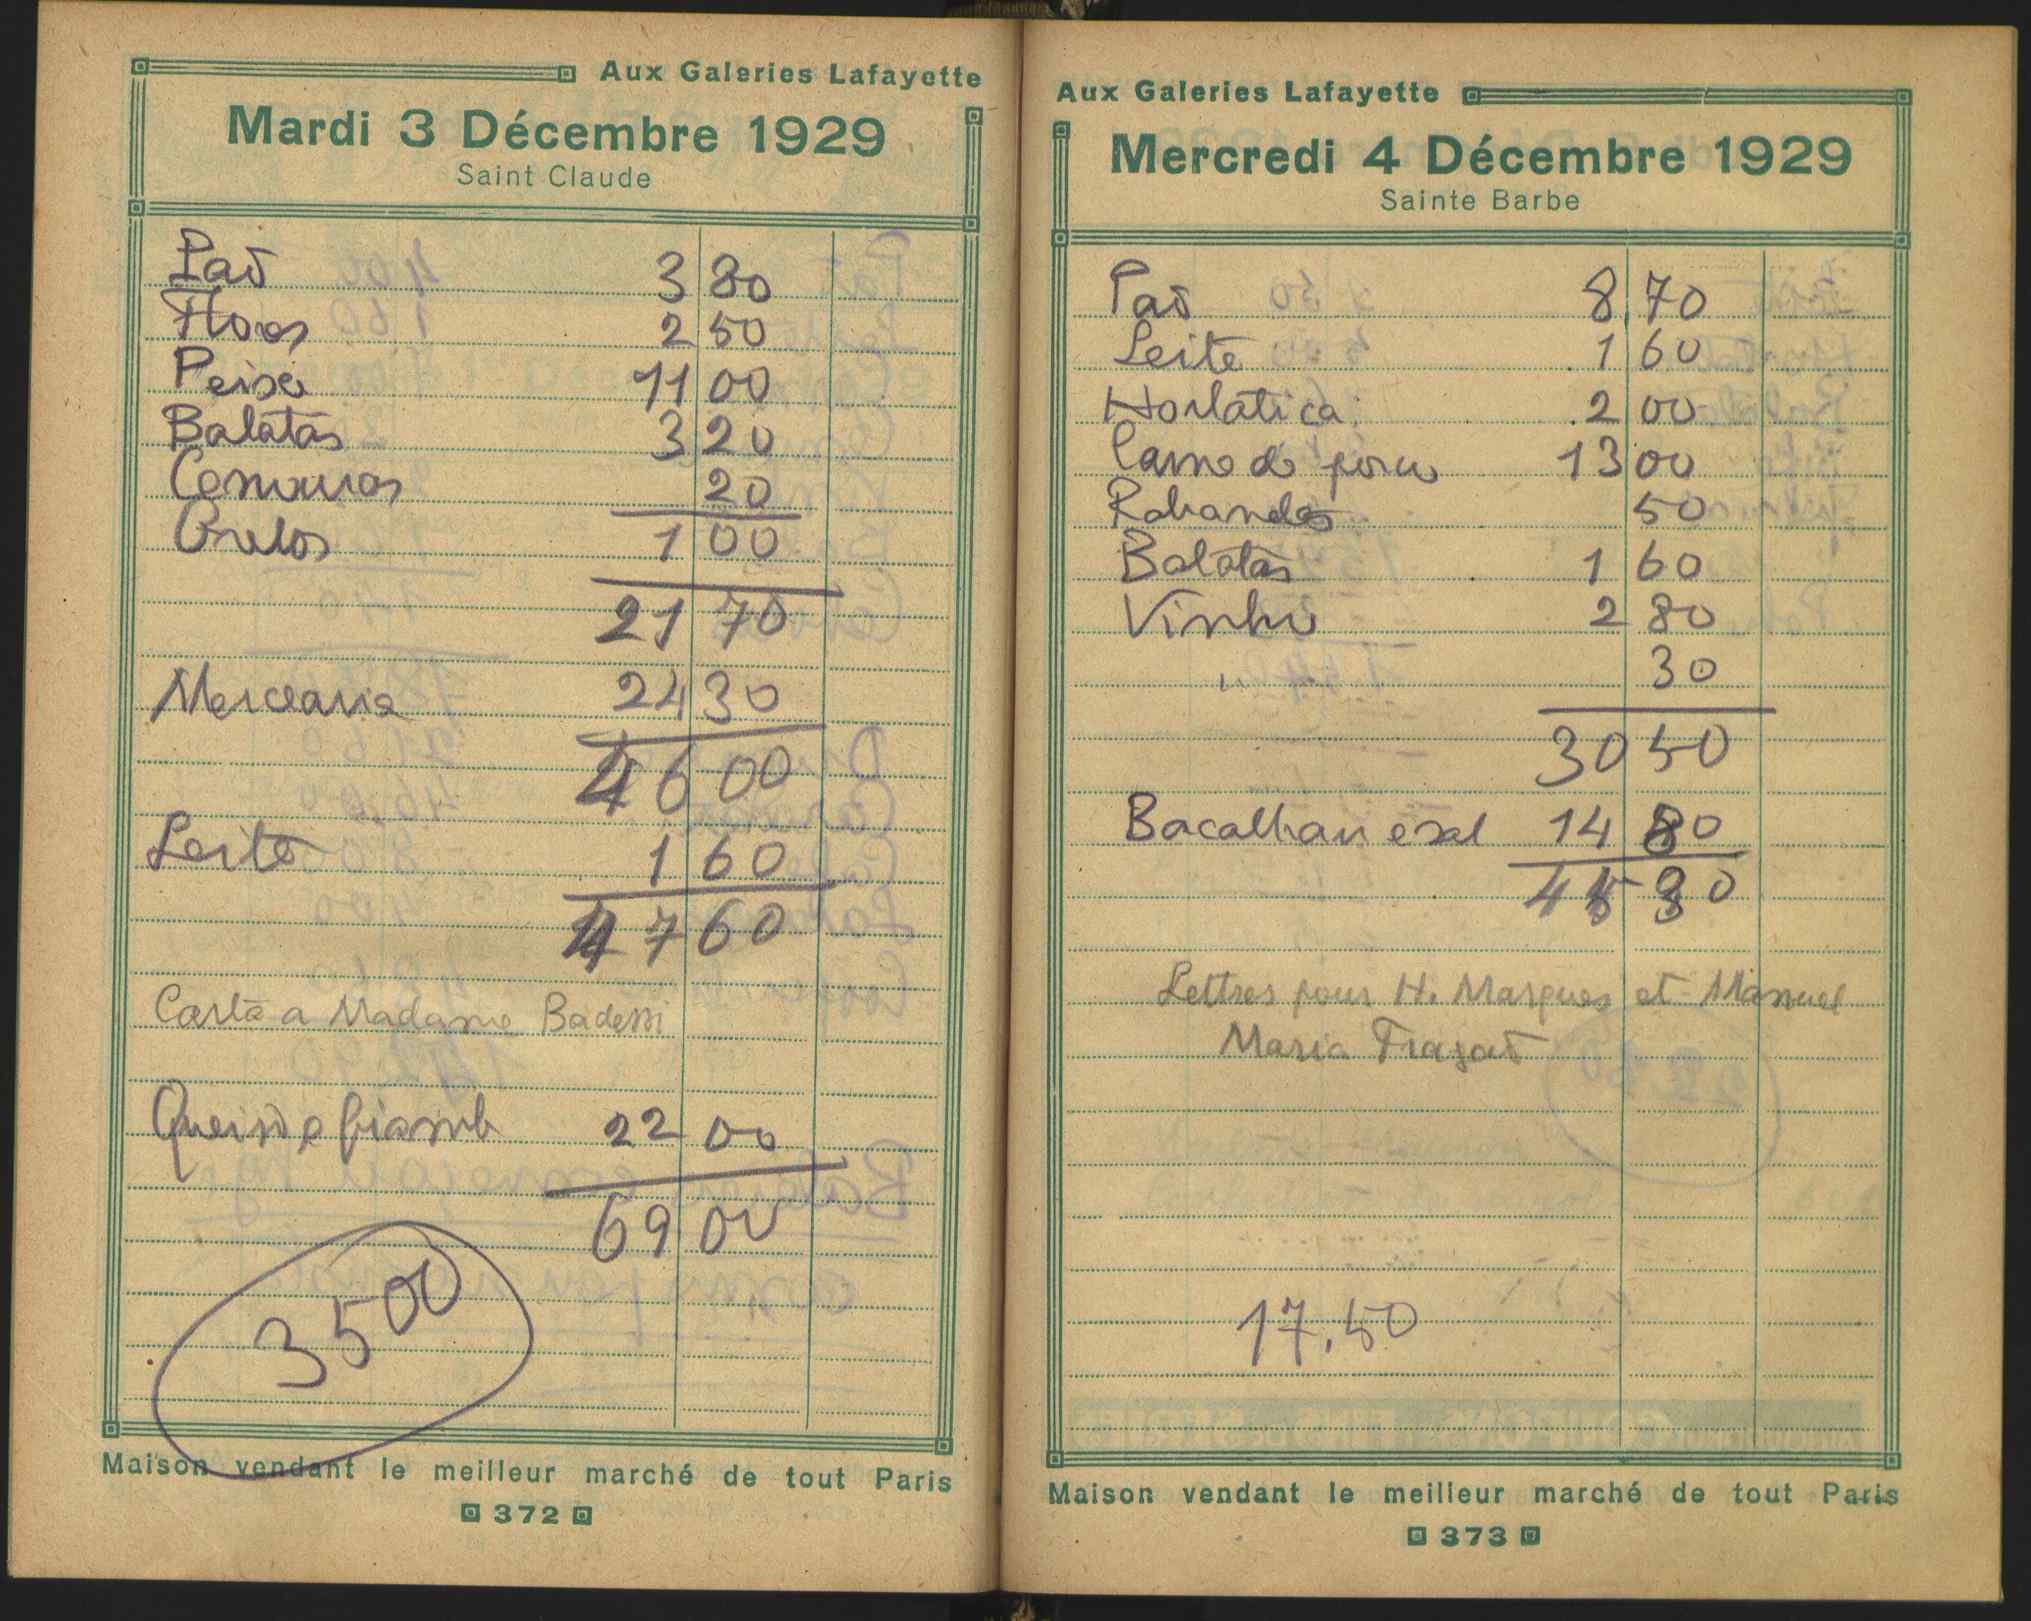 Aux Galeries Lafayette
Mardi 3 Décembre 1929
Saint Claude
Paõ 3 80
Flores 2 50
Peixe 11 00
Batatas 3 20
Cenouras 20
Grelos 1 00
21 70
Mercearia 24 30
46 00
Leite 1 60
47 60
Carta a Madame Badessi
Queijo e fiamb 22 00
69 00
35 00
Maison vendant le meilleur marché de tout Paris
372
Aux Galeries Lafayette
Mercredi 4 Décembre 1929
Sainte Barbe
Paõ 8 70
Leite 1 60
Hortaliça 2 00
Carne de porco 13 00
Rabanetes 50
Batatas 1 60
Vinho 2 80
" 30
30 50
Bacalhau e sal 14 80
45 30
Lettres pour H. Marques et Manuel
Maria Frazaõ
17.50
Maison vendant le meilleur marché de tout Paris
373